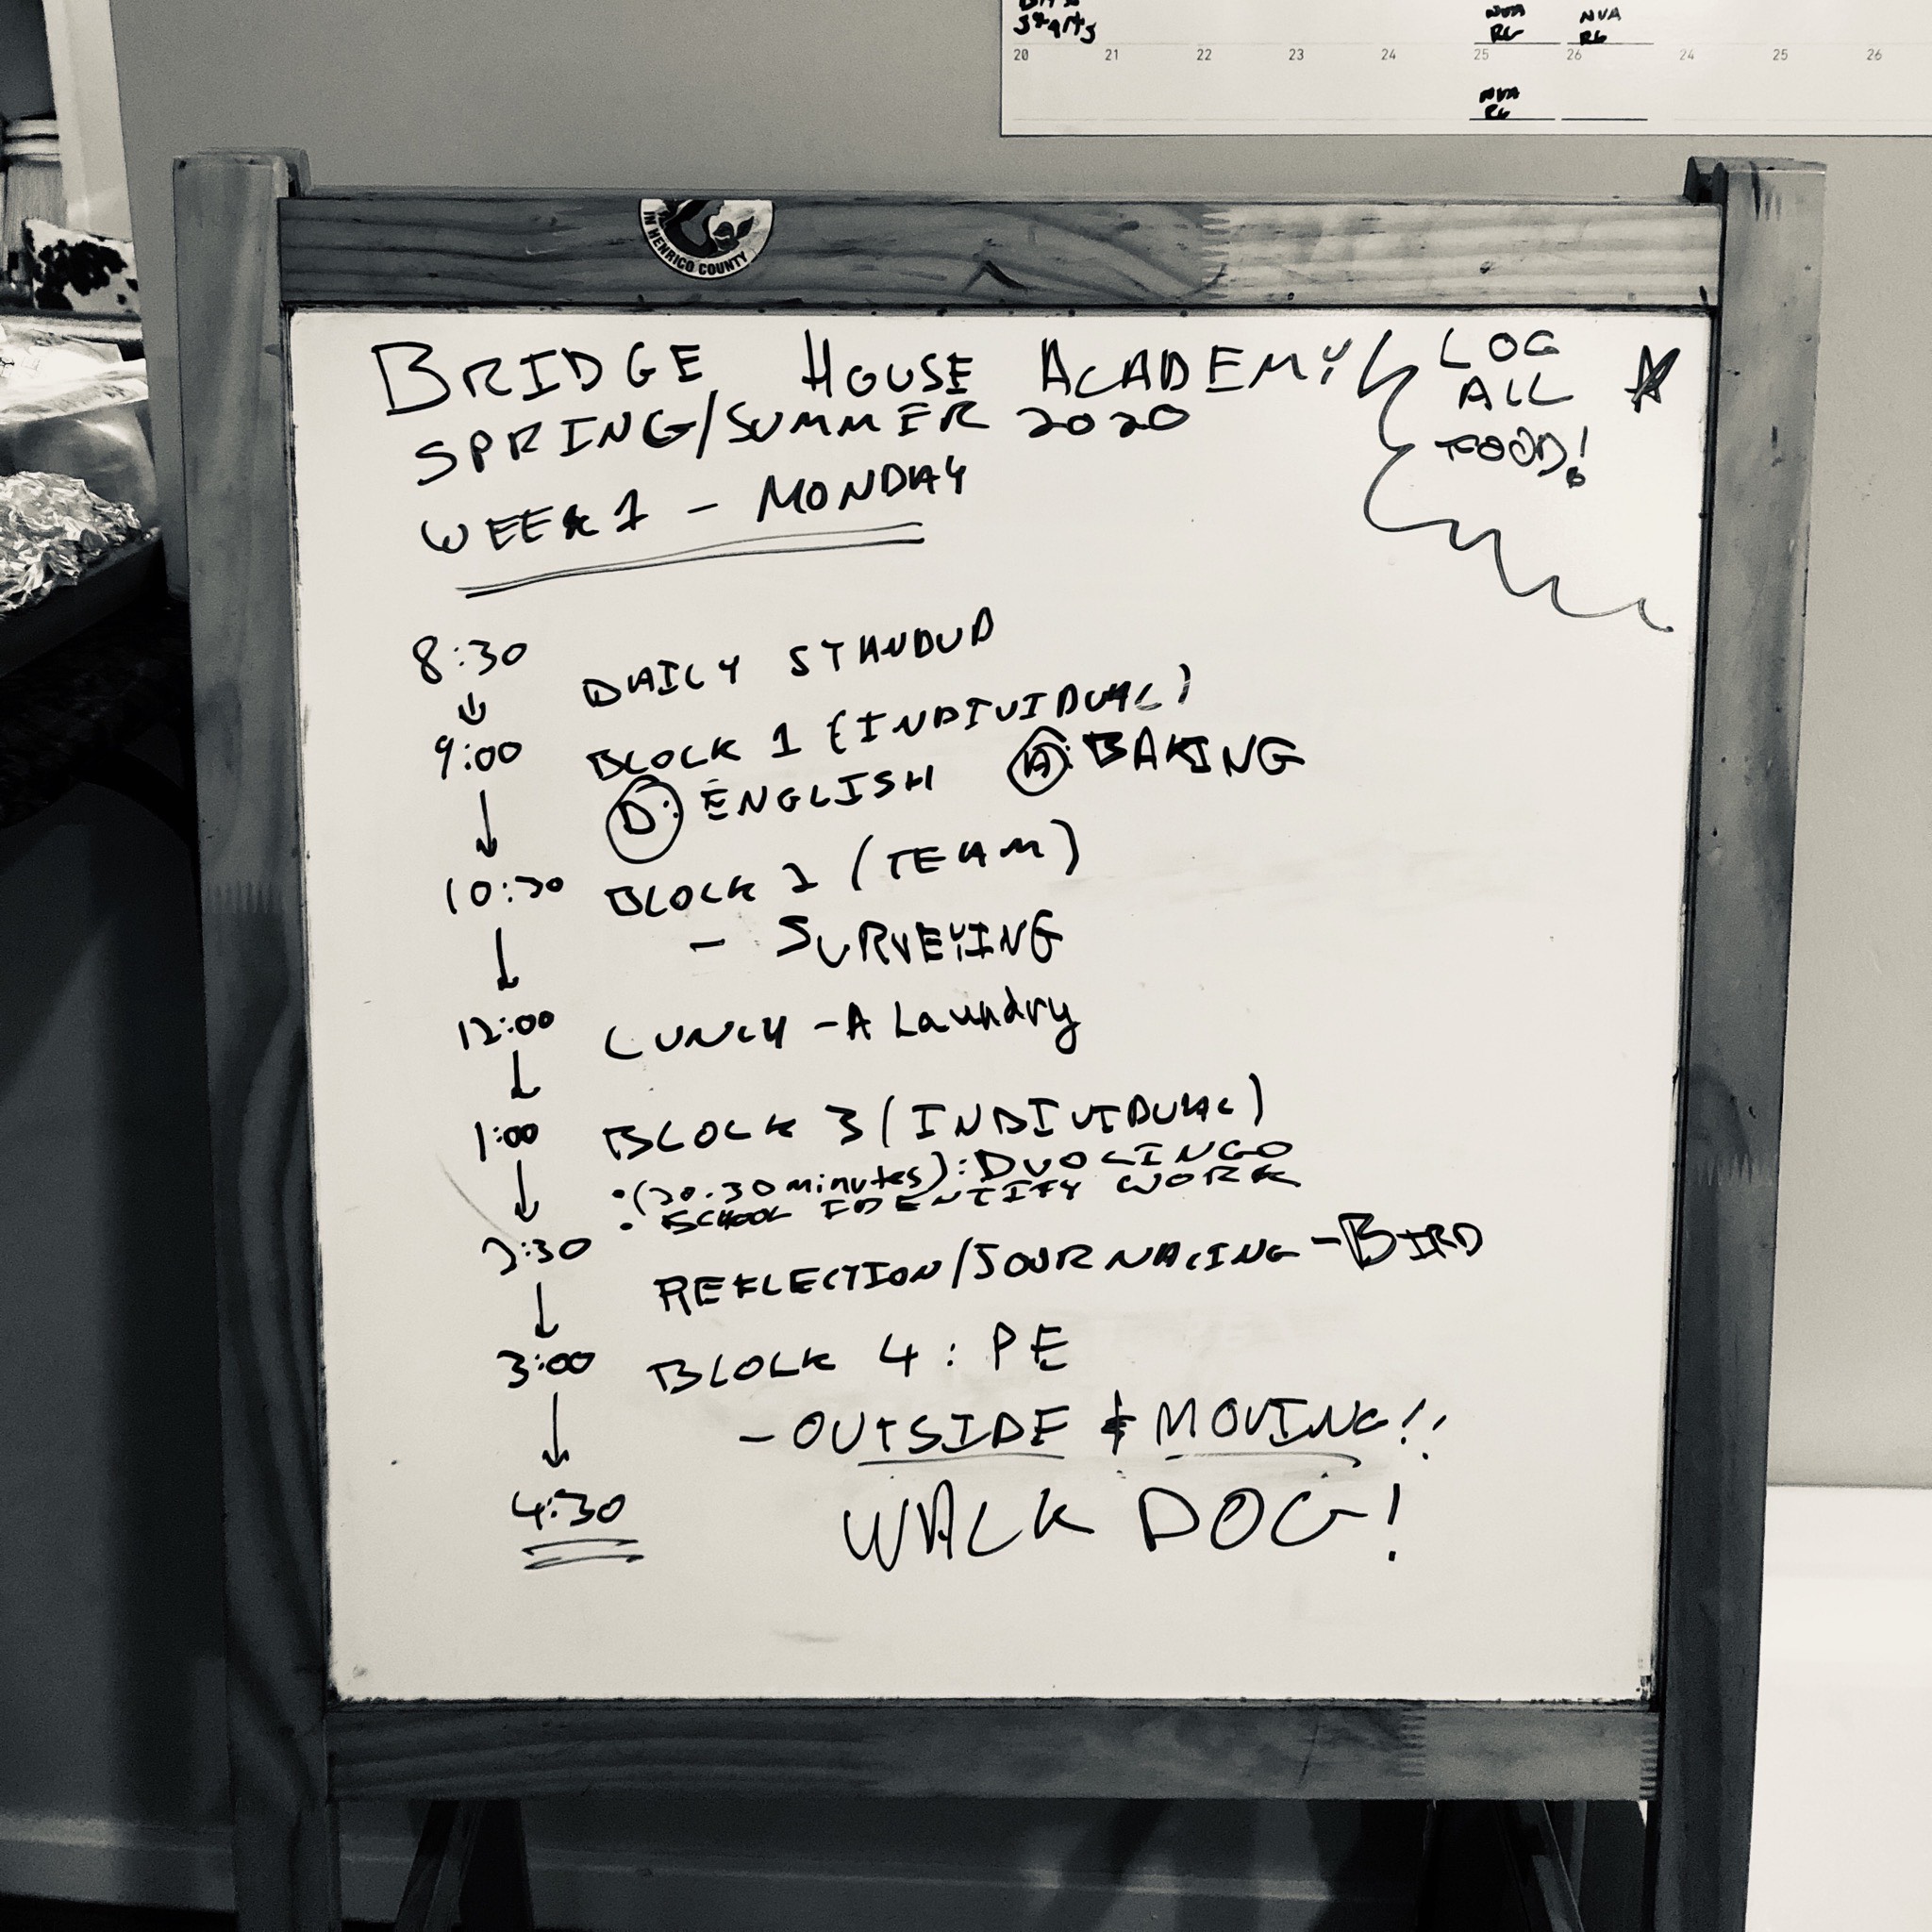 starts
NVA
RG
NVA
RG
20 21 22 23 24 25 26 24 25 26
NVA
RG
IN HENRICO COUNTY
BRIDGE HOUSE ACADEMY
SPRING/SUMMER 2020
WEEK 1 - MONDAY
LOG
ALL
FOOD!
8:30 DAILY STANDUP
9:00 BLOCK 1 (INDIVIDUAL)
D: ENGLISH A: BAKING
10:30 BLOCK 2 (TEAM)
- SURVEYING
12:00 LUNCH - A Laundry
1:00 BLOCK 3 (INDIVIDUAL)
• (20-30 minutes): DUOLINGO
• SCHOOL IDENTIFY WORK
2:30 REFLECTION/JOURNALING - BIRD
3:00 BLOCK 4: PE
- OUTSIDE & MOVING!!
4:30 WALK DOG!